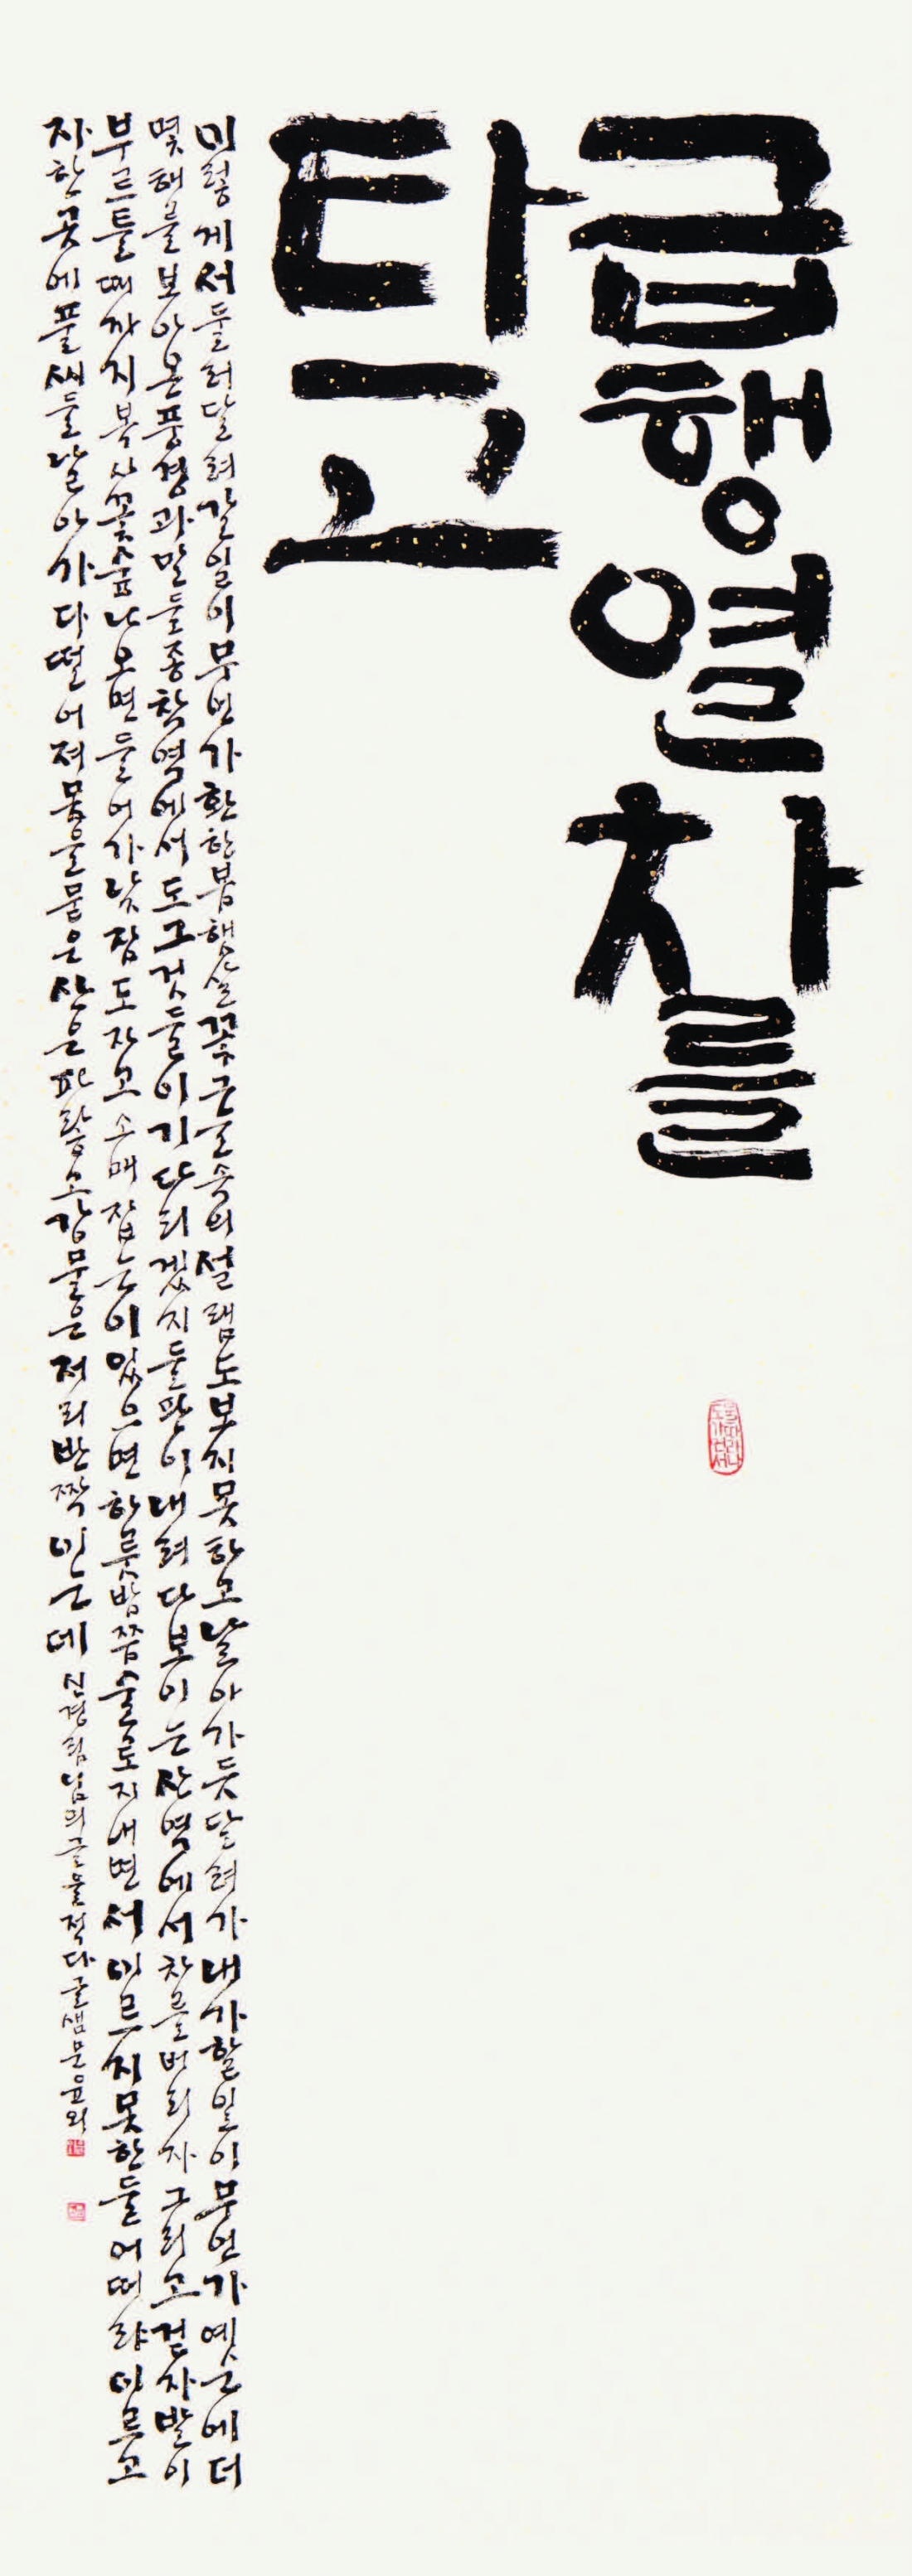 급행열차를
타고
이렇게서둘러달려갈일이무언가환한봄햇살꽃그늘속의설렘도보지못하고날아가듯달려가내가할일이무언가예순에더
몇해를보아온풍경과말들종착역에서도그것들이기다리겠지들판이내려다보이는산역에서차를버리자그리고걷자발이
부르틀때까지복사꽃숲나오면들어가낮잠도자고소매잡는이있으면하룻밤쯤술로지내면서이르지못한들어떠랴이르고
자한곳에풀씨들날아가다떨어져몸을묻은산은파랗고강물은저리반짝이는데 신경림님의글을적다글샘